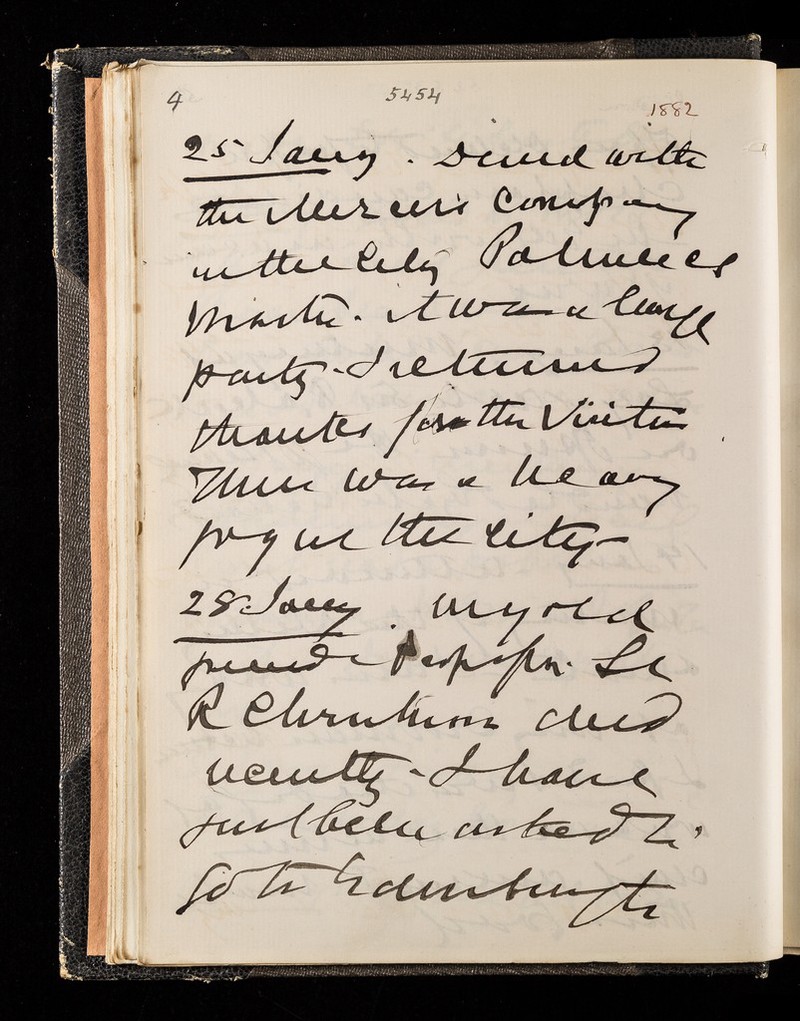 4 5454 1882
25 Jany. Dined with
the Mercers Company
in the City Palmer as
Master. it was a large
party - I returned
thanks for the Visitors
There was a heavy
fog in the City -
28 Jany. my old
friend Professor Sir
R Christison died
recently - I have
just been asked to
go to Edinburgh